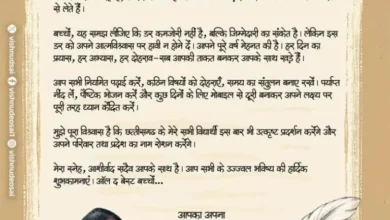 से लेते हैं।
बच्चों, यह समझ लीजिए कि डर कमजोरी नहीं है, बल्कि जिम्मेदारी का संकेत है। लेकिन इस
डर को अपने आत्मविश्वास पर हावी न होने दें। आपने पूरे वर्ष मेहनत की है। हर दिन का
प्रयास, हर अभ्यास, हर दोहराव-सब आपकी ताकत बनकर आपके साथ खड़े हैं।
आप सभी नियमित पढ़ाई करें, कठिन विषयों को दोहराएँ, समय का संतुलन बनाए रखें। पर्याप्त
नींद लें, पौष्टिक भोजन करें और कुछ दिनों के लिए मोबाइल से दूरी बनाकर अपने लक्ष्य पर
पूरी तरह ध्यान केंद्रित करें।
मुझे पूरा विश्वास है कि छत्तीसगढ़ के मेरे सभी विद्यार्थी इस बार भी उत्कृष्ट प्रदर्शन करेंगे और
अपने परिवार तथा प्रदेश का नाम रोशन करेंगे।
मेरा स्नेह, आशीर्वाद सदैव आपके साथ है। आप सभी के उज्ज्वल भविष्य की हार्दिक
शुभकामनाएं। ऑल द बेस्ट बच्चों...
आपका अपना
vishnudsai
vishnudeosai